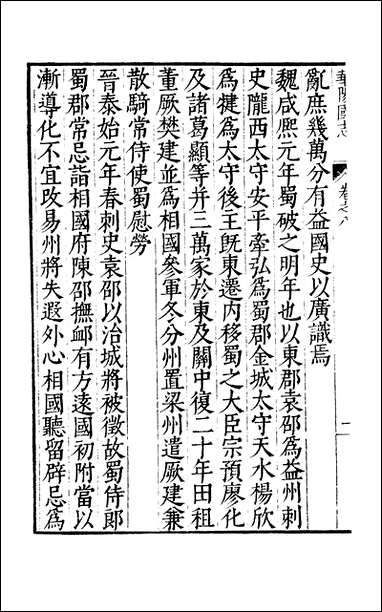 華陽國志
卷之八
二
亂庶幾萬分有益國史以廣識焉
魏咸熙元年蜀破之明年也以東郡袁邵爲益州刺
史隴西太守安平牽弘爲蜀郡金城太守天水楊欣
爲犍爲太守後王旣東遷内移蜀之大臣宗預廖化
及諸葛顯等并三萬家於東及關中復二十年田租
董厥樊建並爲相國參軍冬分州置梁州遣厥建兼
散騎常侍使蜀慰勞
晉泰始元年春刺史袁邵以治城將被徵故蜀侍郎
蜀郡常忌詣相國府陳邵撫䘏有方遠國初附當以
漸導化不宜改易州將失遐外心相國聽留辟忌爲